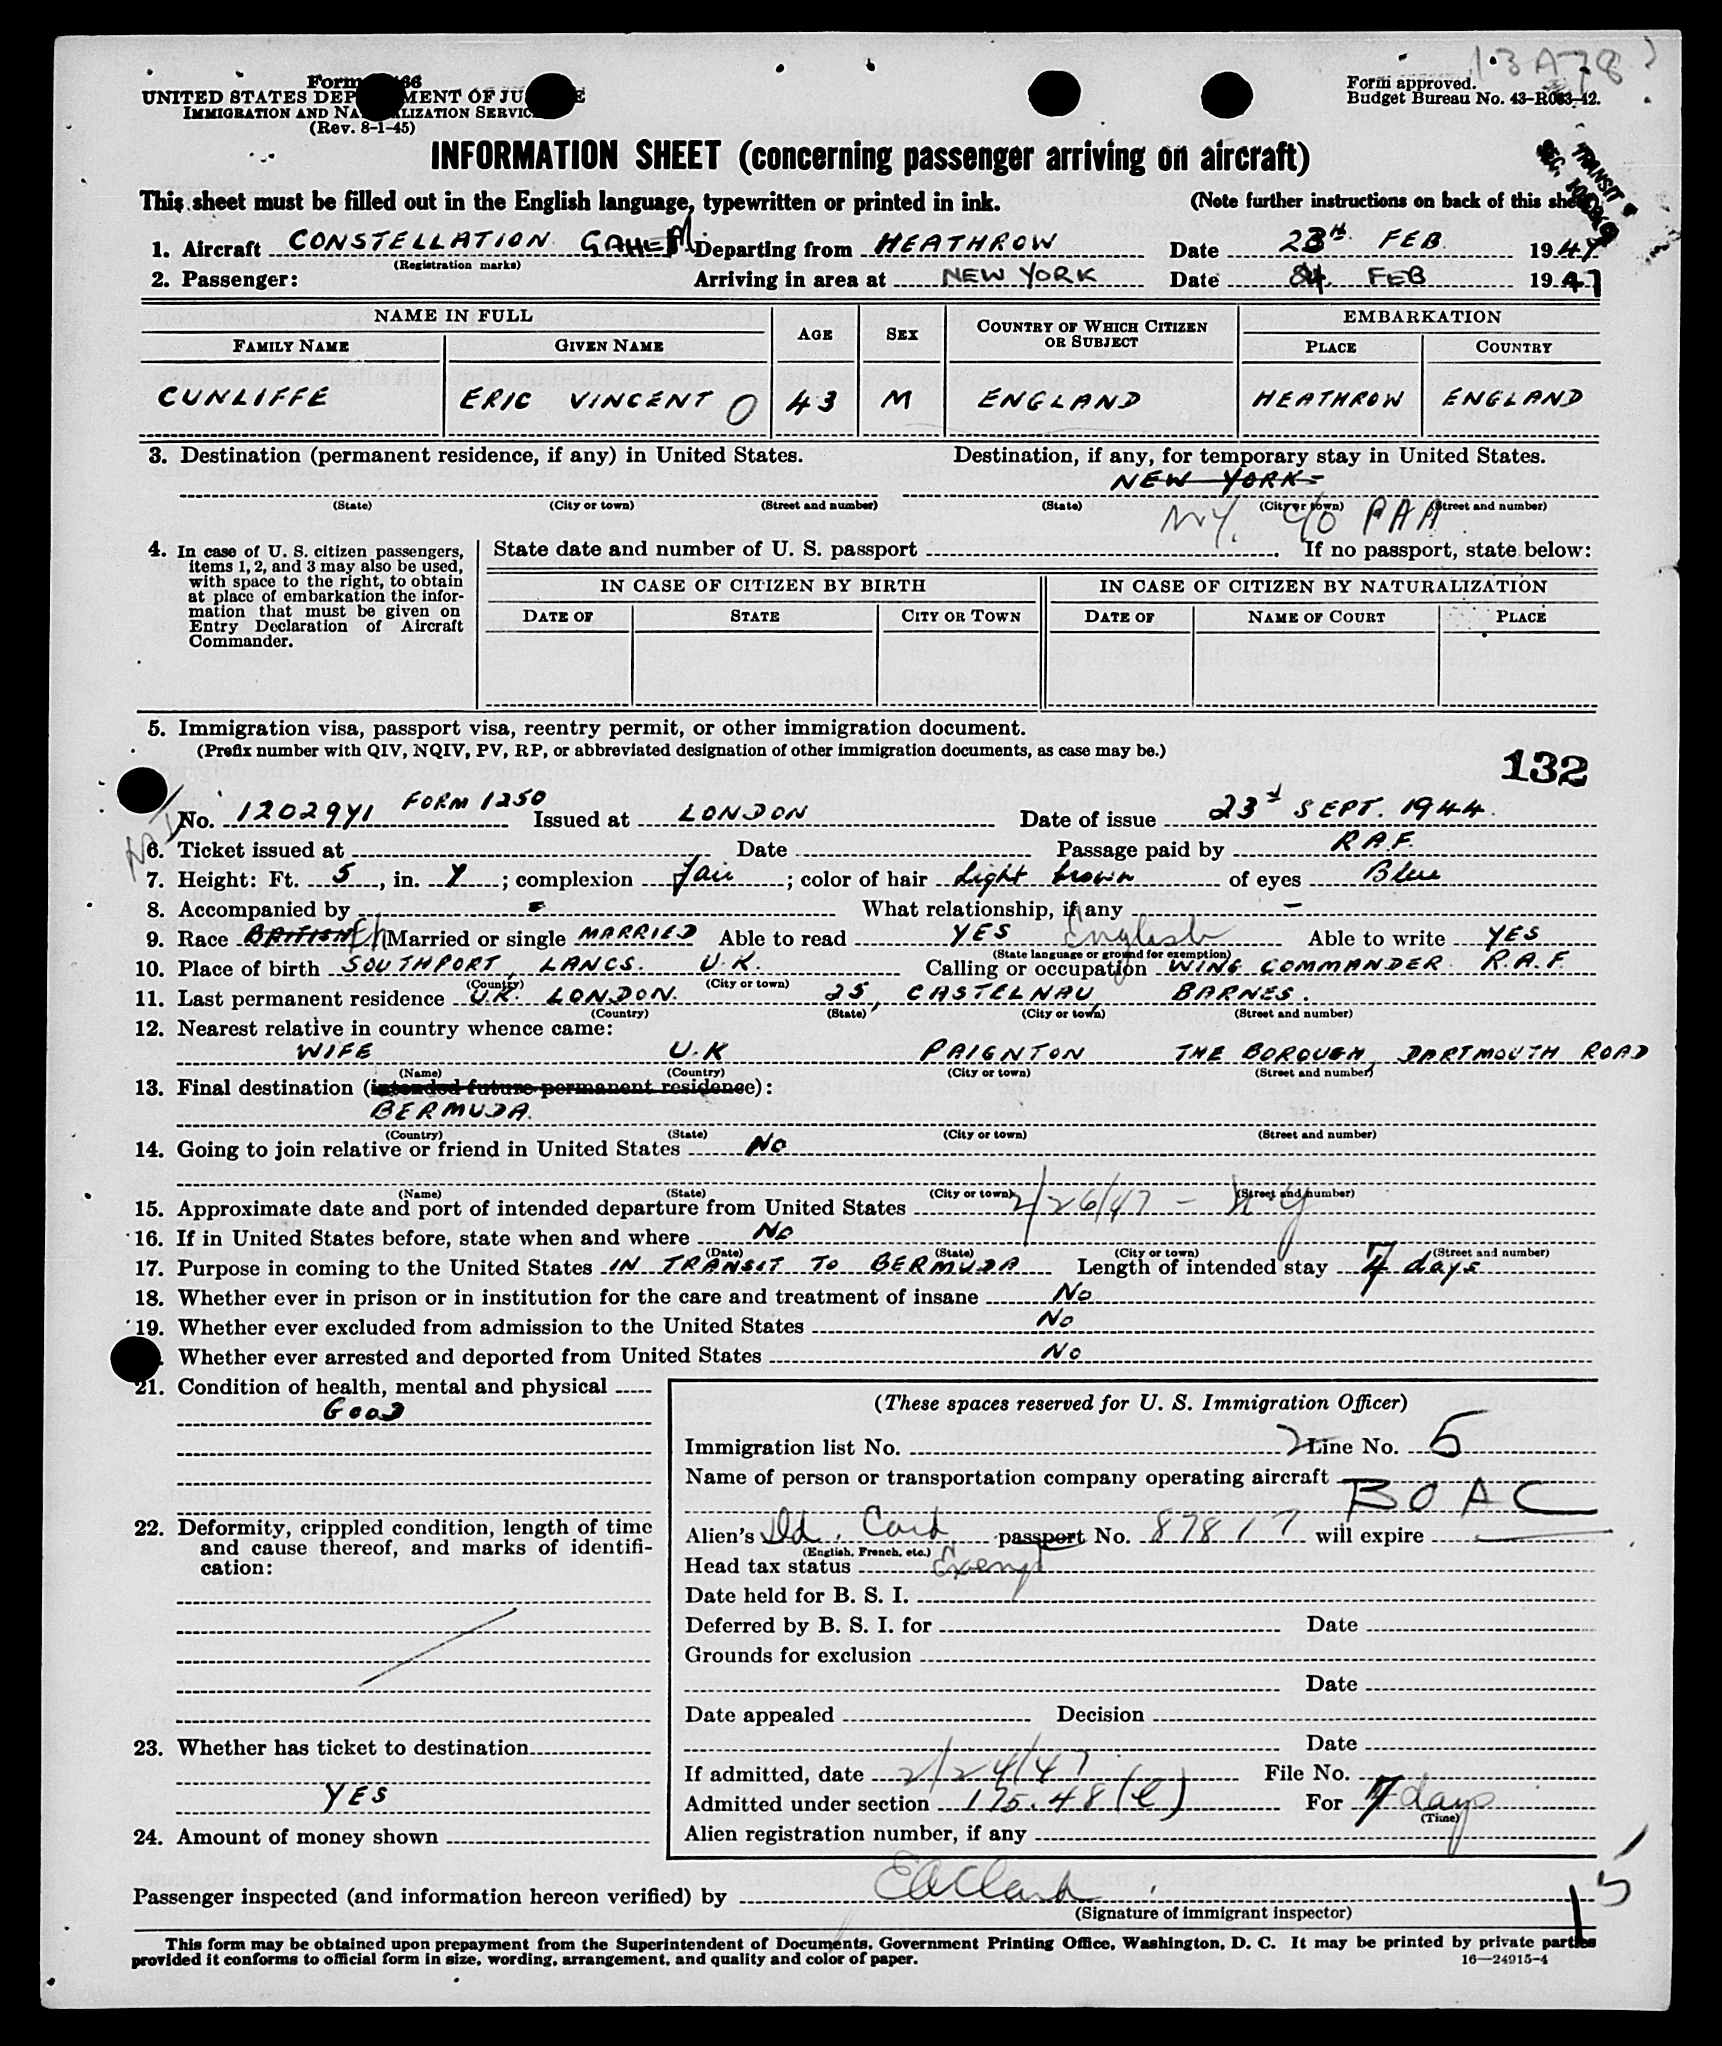 13A78
Form 66
UNITED STATES DEP MENT OF JU E
IMMIGRATION AND NA LIZATION SERVIC
(Rev. 8-1-45)
Form approved.
Budget Bureau No. 43-R083-42.
INFORMATION SHEET (concerning passenger arriving on aircraft)
TRANSIT
SEC.
This sheet must be filled out in the English language, typewritten or printed in ink. (Note further instructions on back of this sheet)
1. Aircraft CONSTELLATION GAHEM Departing from HEATHROW Date 23rd FEB 1947
(Registration marks)
2. Passenger: Arriving in area at NEW YORK Date 24 FEB 1947
NAME IN FULL AGE SEX COUNTRY OF WHICH CITIZEN OR SUBJECT EMBARKATION
FAMILY NAME GIVEN NAME PLACE COUNTRY
CUNLIFFE ERIC VINCENT O 43 M ENGLAND HEATHROW ENGLAND
3. Destination (permanent residence, if any) in United States. Destination, if any, for temporary stay in United States.
NEW YORK
(State) (City or town) (Street and number) (State) (City or town) (Street and number)
NY. c/o PAA
4. In case of U. S. citizen passengers, items 1, 2, and 3 may also be used, with space to the right, to obtain at place of embarkation the information that must be given on Entry Declaration of Aircraft Commander.
State date and number of U. S. passport . If no passport, state below:
IN CASE OF CITIZEN BY BIRTH IN CASE OF CITIZEN BY NATURALIZATION
DATE OF STATE CITY OR TOWN DATE OF NAME OF COURT PLACE
5. Immigration visa, passport visa, reentry permit, or other immigration document.
(Prefix number with QIV, NQIV, PV, RP, or abbreviated designation of other immigration documents, as case may be.)
132
No. 1202941 FORM 1250 Issued at LONDON Date of issue 23rd SEPT. 1944.
6. Ticket issued at Date Passage paid by R.A.F.
7. Height: Ft. 5, in. 7; complexion Fair; color of hair Light brown of eyes Blue
8. Accompanied by - What relationship, if any -
9. Race BRITISH Eng Married or single MARRIED Able to read YES English Able to write YES
(State language or ground for exemption)
10. Place of birth SOUTHPORT, LANCS. U.K. Calling or occupation WING COMMANDER R.A.F.
(Country) (City or town)
11. Last permanent residence U.K. LONDON. 25, CASTELNAU, BARNES.
(Country) (State) (City or town) (Street and number)
12. Nearest relative in country whence came:
WIFE U.K PAIGNTON THE BOROUGH, DARTMOUTH ROAD
(Name) (Country) (City or town) (Street and number)
13. Final destination (intended future permanent residence):
BERMUDA.
(Country) (State) (City or town) (Street and number)
14. Going to join relative or friend in United States No
(Name) (State) (City or town) (Street and number)
15. Approximate date and port of intended departure from United States 2/26/47 - NY
16. If in United States before, state when and where No
(Date) (State) (City or town) (Street and number)
17. Purpose in coming to the United States IN TRANSIT TO BERMUDA Length of intended stay 7 days
18. Whether ever in prison or in institution for the care and treatment of insane No
19. Whether ever excluded from admission to the United States No
Whether ever arrested and deported from United States No
21. Condition of health, mental and physical
GOOD
22. Deformity, crippled condition, length of time and cause thereof, and marks of identification:
23. Whether has ticket to destination
YES
24. Amount of money shown
(These spaces reserved for U. S. Immigration Officer)
Immigration list No. 2 Line No. 5
Name of person or transportation company operating aircraft
BOAC
Alien's Id. Card passport No. 87817 will expire
(English, French, etc.)
Head tax status Exempt
Date held for B. S. I.
Deferred by B. S. I. for Date
Grounds for exclusion
Date
Date appealed Decision
Date
If admitted, date 2/24/47 File No.
Admitted under section 175.48(e) For 7 days
(Time)
Alien registration number, if any
Passenger inspected (and information hereon verified) by EAClark
(Signature of immigrant inspector)
15
This form may be obtained upon prepayment from the Superintendent of Documents, Government Printing Office, Washington, D. C. It may be printed by private parties
provided it conforms to official form in size, wording, arrangement, and quality and color of paper. 16—24915-4